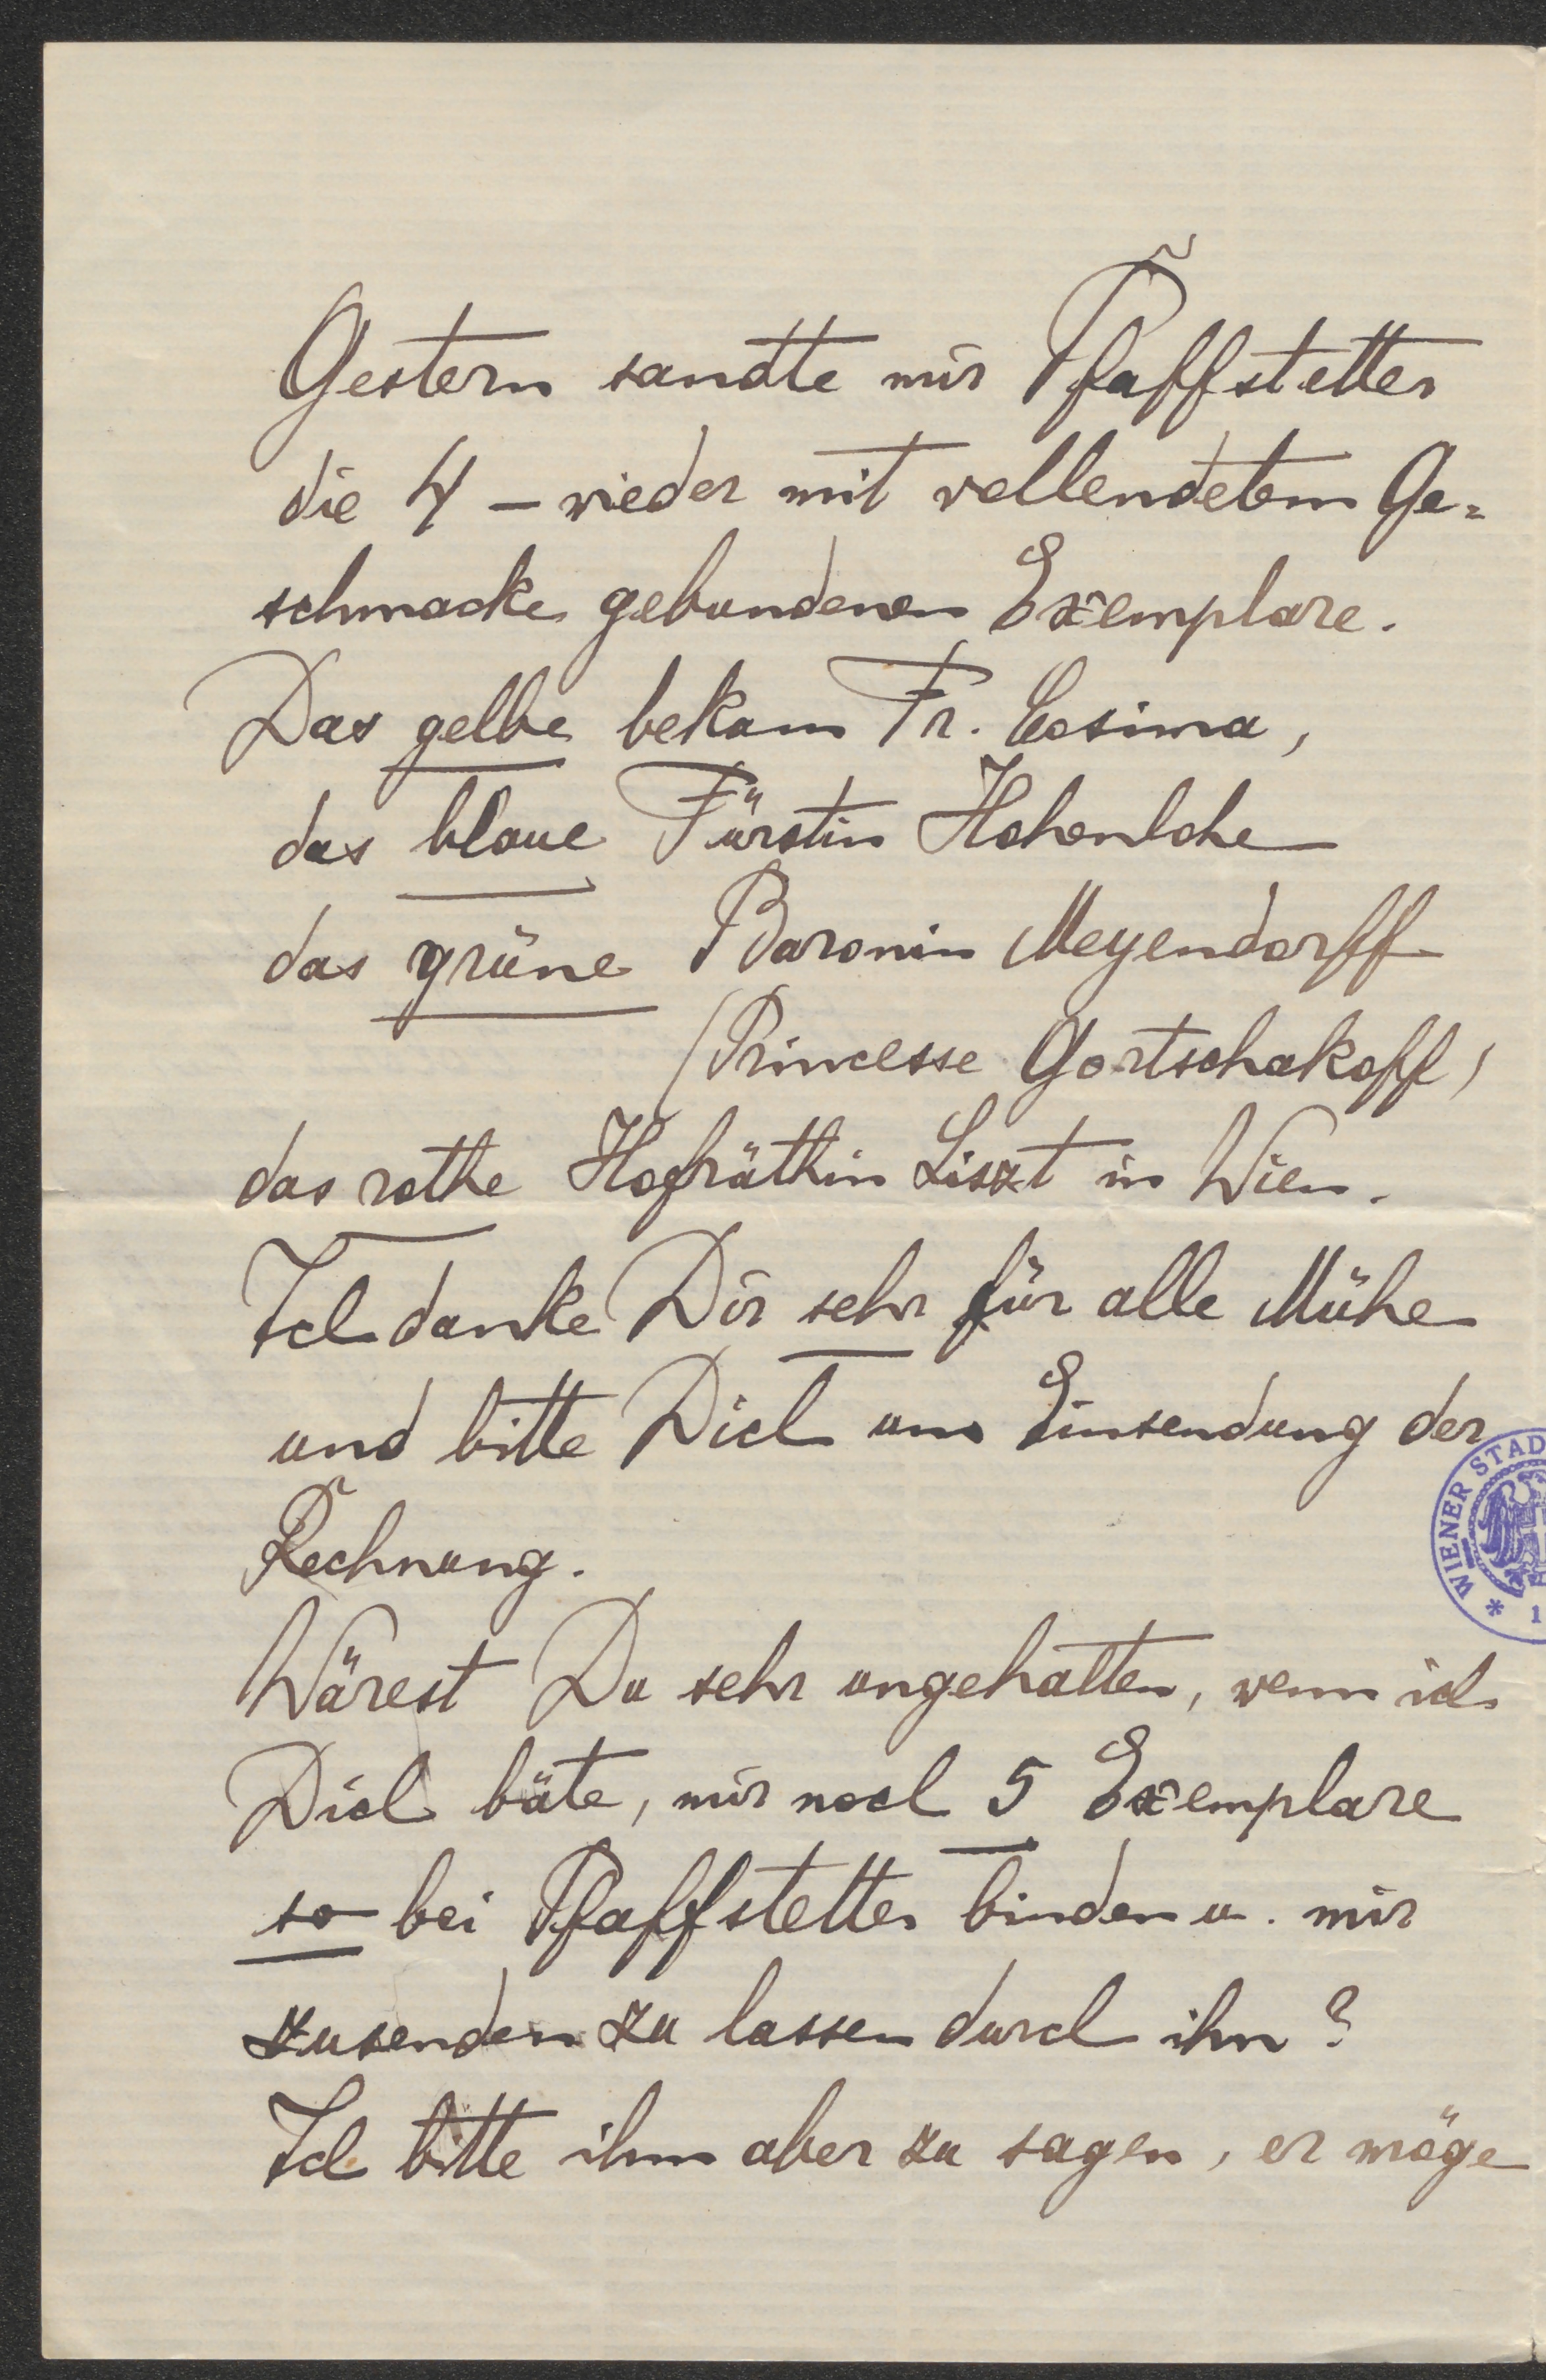 Gestern sandte mir Pfaffstetter
die 4 – wieder mit vollendetem Ge=
schmacke gebundenen Exemplare.
Das gelbe bekam Fr. Cosima,
das blaue Fürstin Hohenlohe
das grüne Baronin Meyendorff
(Princesse Gortschakoff)
das rothe Hofräthin Liszt in Wien.
Ich danke Dir sehr für alle Mühe
und bitte Dich um Einsendung der
Rechnung.
WIENER STAD
* 1
Wärest Du sehr ungehalten, wenn ich
Dich bäte, mir noch 5 Exemplare
so bei Pfaffstetter binden u. mir
zusenden zu lassen durch ihn?
Ich bitte ihm aber zu sagen, er möge